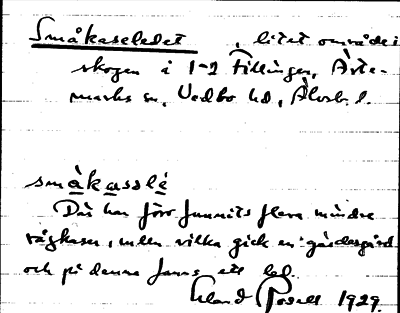 Småkaseledet, litet område i
skogen å 1-2 Fillingen, Ärte-
marks sn, Vedbo hd, Älvsb. l.
småkasslé
Där har förr funnits flera mindre
rågkaser, mellan vilka gick en gärdesgård
och på denna fanns ett led.
1929.